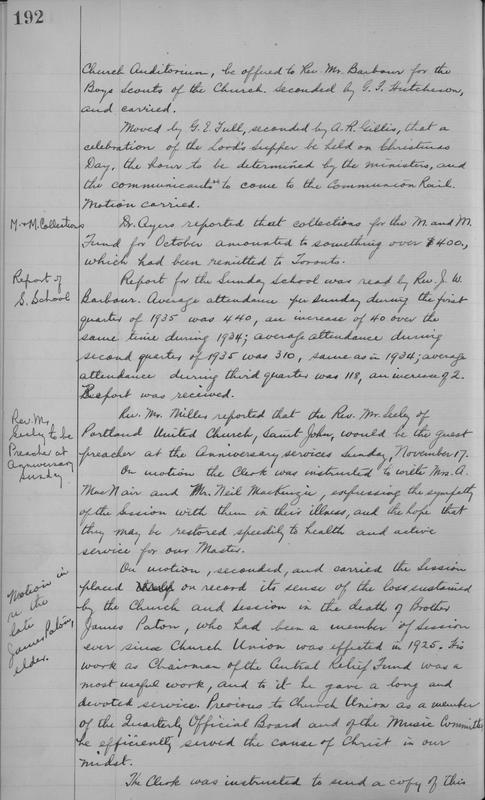 192
Church Auditorium, be offered to Rev. Mr. Barbour for the
Boys Scouts of the Church. Seconded by G. F. Hutcheson,
and carried.
Moved by G. E. Tull, seconded by A. R. Gillis, that a
celebration of the Lord's Supper be held on Christmas
Day, the hour to be determined by the ministers, and
the communicants to come to the Communion Rail.
Motion carried.
M. & M. Collections
Dr. Ayers reported that collections for the M. and M.
Fund for October amounted to something over $400,
which had been remitted to Toronto.
Report of
S. School
Report for the Sunday School was read by Rev. J. W.
Barbour. Average attendance per Sunday during the first
quarter of 1935 was 440, an increase of 40 over the
same time during 1934; average attendance during
second quarter of 1935 was 310, same as in 1934; average
attendance during third quarter was 118, an increase of 2.
Report was received.
Rev. Mr.
Seely to be
Preacher at
Anniversary
Sunday
Rev. Mr. Miller reported that the Rev. Mr. Seely of
Portland United Church, Saint John, would be the guest
preacher at the Anniversary services Sunday, November 17.
On motion the Clerk was instructed to write Mrs. A.
MacNair and Mr. Neil MacKenzie, expressing the sympathy
of the Session with them in their illness, and the hope that
they may be restored speedily to health and active
service for our Master.
Motion in
re the
late
James Paton,
elder.
On motion, seconded, and carried the Session
placed on record its sense of the loss sustained
by the Church and Session in the death of Brother
James Paton, who had been a member of Session
ever since Church Union was effected in 1925. His
work as Chairman of the Central Relief Fund was a
most useful work, and to it he gave a long and
devoted service. Previous to Church Union as a member
of the Quarterly Official Board and of the Music Committee
he efficiently served the cause of Christ in our
midst.
The Clerk was instructed to send a copy of this